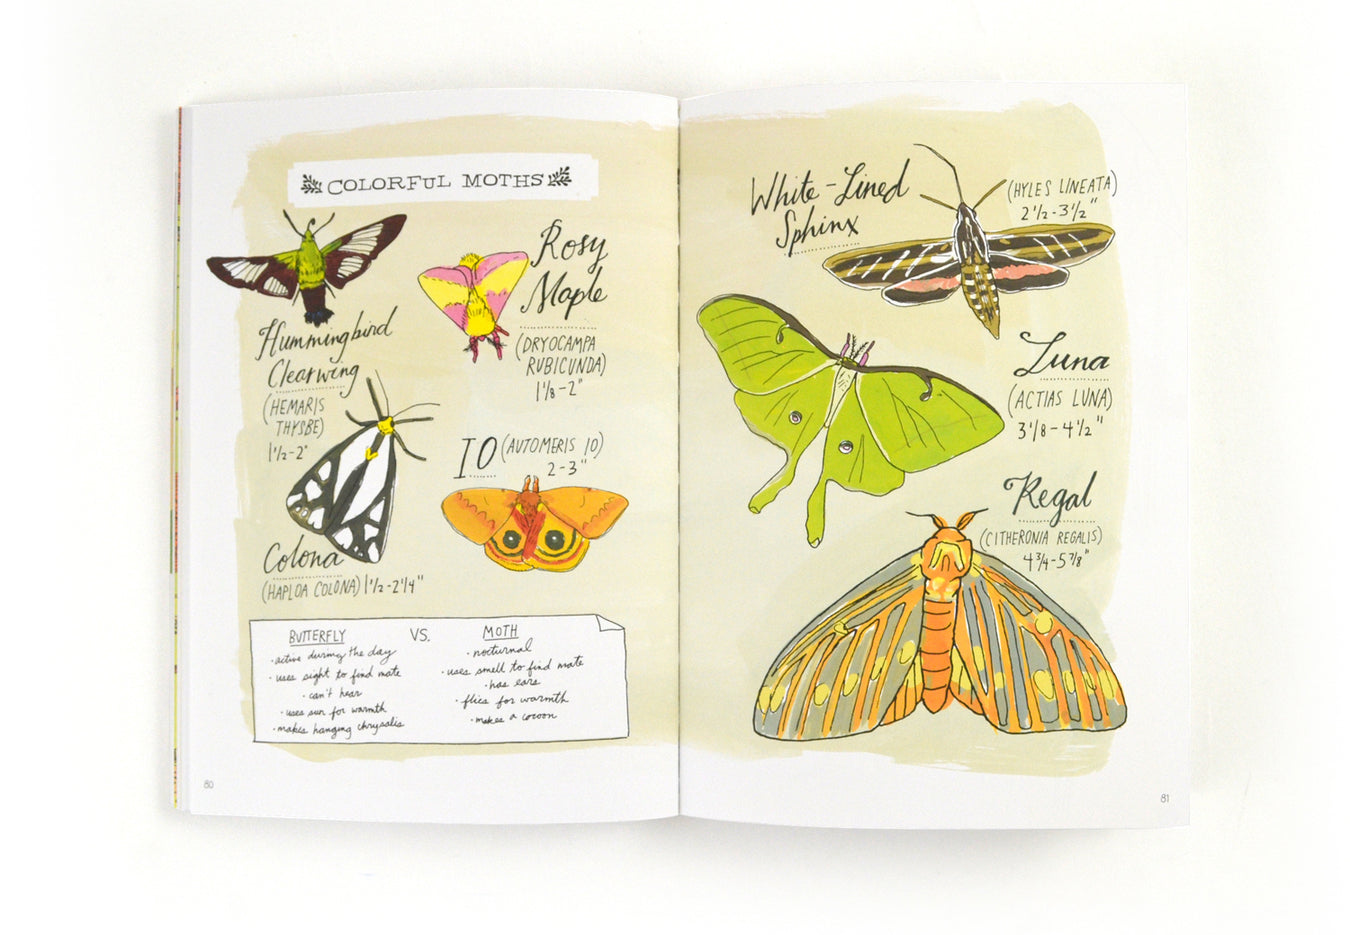 COLORFUL MOTHS
Hummingbird
Clearwing
(HEMARIS
THYSBE)
1 1/2-2"
Rosy
Maple
(DRYOCAMPA
RUBICUNDA)
1 1/8-2"
IO (AUTOMERIS IO)
2-3"
Colona
(HAPLOA COLONA) 1 1/2-2 1/4"
BUTTERFLY VS. MOTH
• active during the day
• uses sight to find mate
• can't hear
• uses sun for warmth
• makes hanging chrysalis
• nocturnal
• uses smell to find mate
• has ears
• flies for warmth
• makes a cocoon
80
White-Lined
Sphinx
(HYLES LINEATA)
2 1/2-3 1/2"
Luna
(ACTIAS LUNA)
3 1/8-4 1/2"
Regal
(CITHERONIA REGALIS)
4 3/4-5 7/8"
81